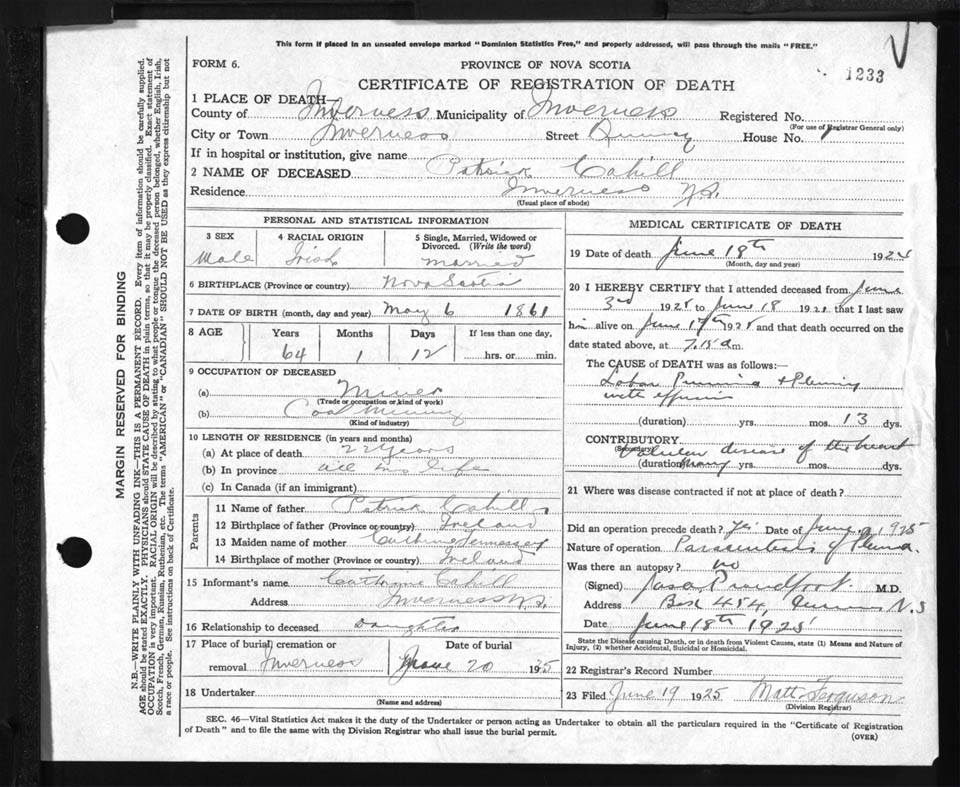 This form if placed in an unsealed envelope marked "Dominion Statistics Free," and properly addressed, will pass through the mails "FREE."
FORM 6.
PROVINCE OF NOVA SCOTIA
1233
CERTIFICATE OF REGISTRATION OF DEATH
1 PLACE OF DEATH—
County of Inverness Municipality of Inverness Registered No.
(For use of Registrar General only)
City or Town Inverness Street House No.
If in hospital or institution, give name
2 NAME OF DECEASED Patrick Cahill
Residence Inverness N.S.
(Usual place of abode)
PERSONAL AND STATISTICAL INFORMATION
3 SEX 4 RACIAL ORIGIN 5 Single, Married, Widowed or Divorced. (Write the word)
Male Irish married
6 BIRTHPLACE (Province or country) Nova Scotia
7 DATE OF BIRTH (month, day and year) May 6 1861
8 AGE Years Months Days If less than one day,
64 1 12 hrs. or min.
9 OCCUPATION OF DECEASED
(a) Miner
(Trade or occupation or kind of work)
(b) Coal Mining
(Kind of industry)
10 LENGTH OF RESIDENCE (in years and months)
(a) At place of death 22 years
(b) In province all his life
(c) In Canada (if an immigrant)
Parents
11 Name of father Patrick Cahill
12 Birthplace of father (Province or country) Ireland
13 Maiden name of mother
14 Birthplace of mother (Province or country) Ireland
15 Informant's name Catherine Cahill
Address Inverness N.S.
16 Relationship to deceased Daughter
17 Place of burial, cremation or Date of burial
removal Inverness June 20 1925
18 Undertaker
(Name and address)
MEDICAL CERTIFICATE OF DEATH
19 Date of death June 18th 192
(Month, day and year)
20 I HEREBY CERTIFY that I attended deceased from June
3rd 1925 to June 18 192 that I last saw
him alive on June 17th 1925 and that death occurred on
date stated above, at 7.15 a m.
The CAUSE of DEATH was as follows:—
Lobar Pneumonia & Pleurisy
with effusion
(duration) yrs. mos. 13 dys.
CONTRIBUTORY
(Secondary) Valvular disease of the heart
(duration) many yrs. mos. dys.
21 Where was disease contracted if not at place of death?
Did an operation precede death? Yes Date of June 1925
Nature of operation Paracentesis of Pleura.
Was there an autopsy? no
(Signed) Proudfoot M.D.
Address Box 454, N.S
Date June 18th 1925
State the Disease causing Death, or in death from Violent Causes, state (1) Means and Nature of Injury, (2) whether Accidental, Suicidal or Homicidal.
22 Registrar's Record Number
23 Filed June 19 1925 Matt Ferguson
(Division Registrar)
SEC. 46—Vital Statistics Act makes it the duty of the Undertaker or person acting as Undertaker to obtain all the particulars required in the "Certificate of Registration
of Death" and to file the same with the Division Registrar who shall issue the burial permit.
(OVER)
MARGIN RESERVED FOR BINDING
N.B.—WRITE PLAINLY WITH UNFADING INK—THIS IS A PERMANENT RECORD. Every item of information should be carefully supplied.
AGE should be stated EXACTLY. PHYSICIANS should STATE CAUSE OF DEATH in plain terms, so that it may be properly classified. Exact statement of
OCCUPATION is very important. RACIAL ORIGIN will be described by stating to what people or tongue the deceased person belonged, whether English, Irish,
Scotch, French, German, Russian, Ruthenian, etc. The terms "AMERICAN" or "CANADIAN" SHOULD NOT BE USED as they express citizenship but not
a race or people. See instructions on back of Certificate.